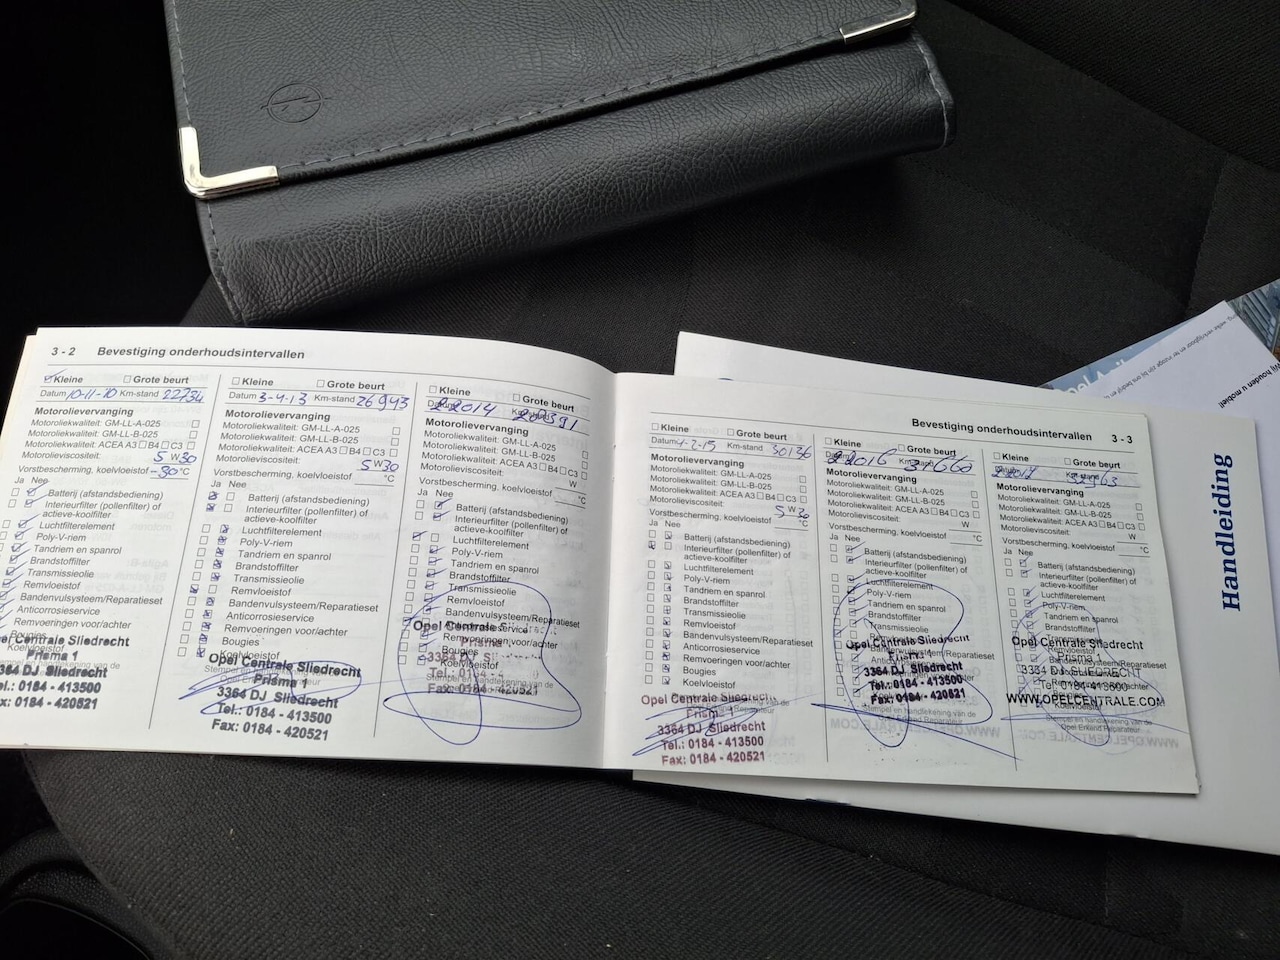 3 - 2 Bevestiging onderhoudsintervallen
Kleine Grote beurt
Datum 10-11-'10 Km-stand 22734
Motorolievervanging
Motoroliekwaliteit: GM-LL-A-025
Motoroliekwaliteit: GM-LL-B-025
Motoroliekwaliteit: ACEA A3 B4 C3
Motorolieviscositeit: 5 W 30
Vorstbescherming, koelvloeistof -30 °C
Ja Nee
Batterij (afstandsbediening)
Interieurfilter (pollenfilter) of
actieve-koolfilter
Luchtfilterelement
Poly-V-riem
Tandriem en spanrol
Brandstoffilter
Transmissieolie
Remvloeistof
Bandenvulsysteem/Reparatieset
Anticorrosieservice
Remvoeringen voor/achter
Bougies
Koelvloeistof
Centrale Sliedrecht
Prisma 1
3364 DJ Sliedrecht
Tel.: 0184 - 413500
0184 - 420521
Kleine Grote beurt
Datum 3-4-13 Km-stand 26943
Motorolievervanging
Motoroliekwaliteit: GM-LL-A-025
Motoroliekwaliteit: GM-LL-B-025
Motoroliekwaliteit: ACEA A3 B4 C3
Motorolieviscositeit: 5 W 30
Vorstbescherming, koelvloeistof °C
Ja Nee
Batterij (afstandsbediening)
Interieurfilter (pollenfilter) of
actieve-koolfilter
Luchtfilterelement
Poly-V-riem
Tandriem en spanrol
Brandstoffilter
Transmissieolie
Remvloeistof
Bandenvulsysteem/Reparatieset
Anticorrosieservice
Remvoeringen voor/achter
Bougies
Koelvloeistof
Opel Centrale Sliedrecht
Prisma 1
3364 DJ Sliedrecht
Tel.: 0184 - 413500
Fax: 0184 - 420521
Kleine Grote beurt
2014 28391
Motorolievervanging
Motoroliekwaliteit: GM-LL-A-025
Motoroliekwaliteit: GM-LL-B-025
Motoroliekwaliteit: ACEA A3 B4 C3
Motorolieviscositeit: W
Vorstbescherming, koelvloeistof °C
Ja Nee
Batterij (afstandsbediening)
Interieurfilter (pollenfilter) of
actieve-koolfilter
Luchtfilterelement
Poly-V-riem
Tandriem en spanrol
Brandstoffilter
Transmissieolie
Remvloeistof
Bandenvulsysteem/Reparatieset
Remvoeringen voor/achter
Bougies
Koelvloeistof
Opel Centrale
Prisma
3364 DJ
Tel.: 0184 -
Fax: 0184 - 420521
Bevestiging onderhoudsintervallen 3 - 3
Kleine Grote beurt
Datum 1-2-15 Km-stand 30136
Motorolievervanging
Motoroliekwaliteit: GM-LL-A-025
Motoroliekwaliteit: GM-LL-B-025
Motoroliekwaliteit: ACEA A3 B4 C3
Motorolieviscositeit: 5 W 30
Vorstbescherming, koelvloeistof °C
Ja Nee
Batterij (afstandsbediening)
Interieurfilter (pollenfilter) of
actieve-koolfilter
Luchtfilterelement
Poly-V-riem
Tandriem en spanrol
Brandstoffilter
Transmissieolie
Remvloeistof
Bandenvulsysteem/Reparatieset
Anticorrosieservice
Remvoeringen voor/achter
Bougies
Koelvloeistof
Opel Centrale
Prisma 1
3364 DJ Sliedrecht
Tel.: 0184 - 413500
Fax: 0184 - 420521
Kleine Grote beurt
2016 32660
Motorolievervanging
Motoroliekwaliteit: GM-LL-A-025
Motoroliekwaliteit: GM-LL-B-025
Motoroliekwaliteit: ACEA A3 B4 C3
Motorolieviscositeit: W
Vorstbescherming, koelvloeistof °C
Ja Nee
Batterij (afstandsbediening)
Interieurfilter (pollenfilter) of
actieve-koolfilter
Luchtfilterelement
Poly-V-riem
Tandriem en spanrol
Brandstoffilter
Transmissieolie
Bandenvulsysteem/Reparatieset
Opel Centrale Sliedrecht
3364 DJ Sliedrecht
Tel.: 0184 - 413500
Fax: 0184 - 420521
Stempel en handtekening van de
Opel Erkend Reparateur
Kleine Grote beurt
2017
Motorolievervanging
Motoroliekwaliteit: GM-LL-A-025
Motoroliekwaliteit: GM-LL-B-025
Motoroliekwaliteit: ACEA A3 B4 C3
Motorolieviscositeit: W
Vorstbescherming, koelvloeistof °C
Ja Nee
Batterij (afstandsbediening)
Interieurfilter (pollenfilter) of
actieve-koolfilter
Luchtfilterelement
Poly-V-riem
Tandriem en spanrol
Brandstoffilter
Transmissieolie
Opel Centrale Sliedrecht
Prisma 1
SLIEDRECHT
WWW.OPELCENTRALE.COM
Stempel en handtekening van de
Opel Erkend Reparateur
Handleiding
Wij houden u mobiel!